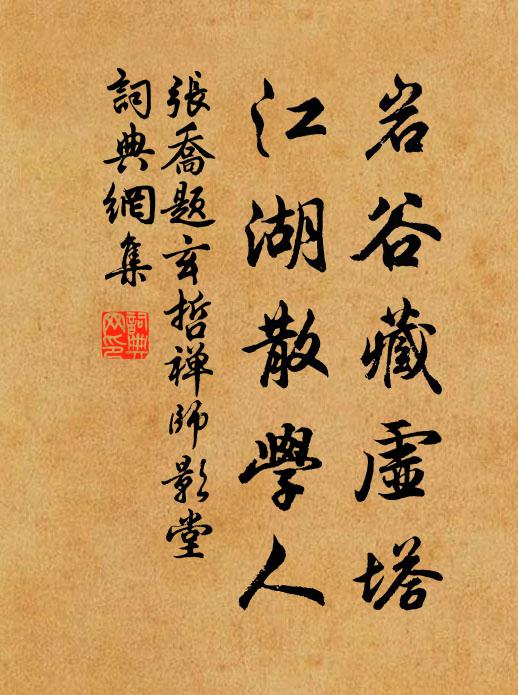 岩谷藏虛塔
江湖散學人
張喬題玄哲禅師影堂
詞典網集
詞典網印